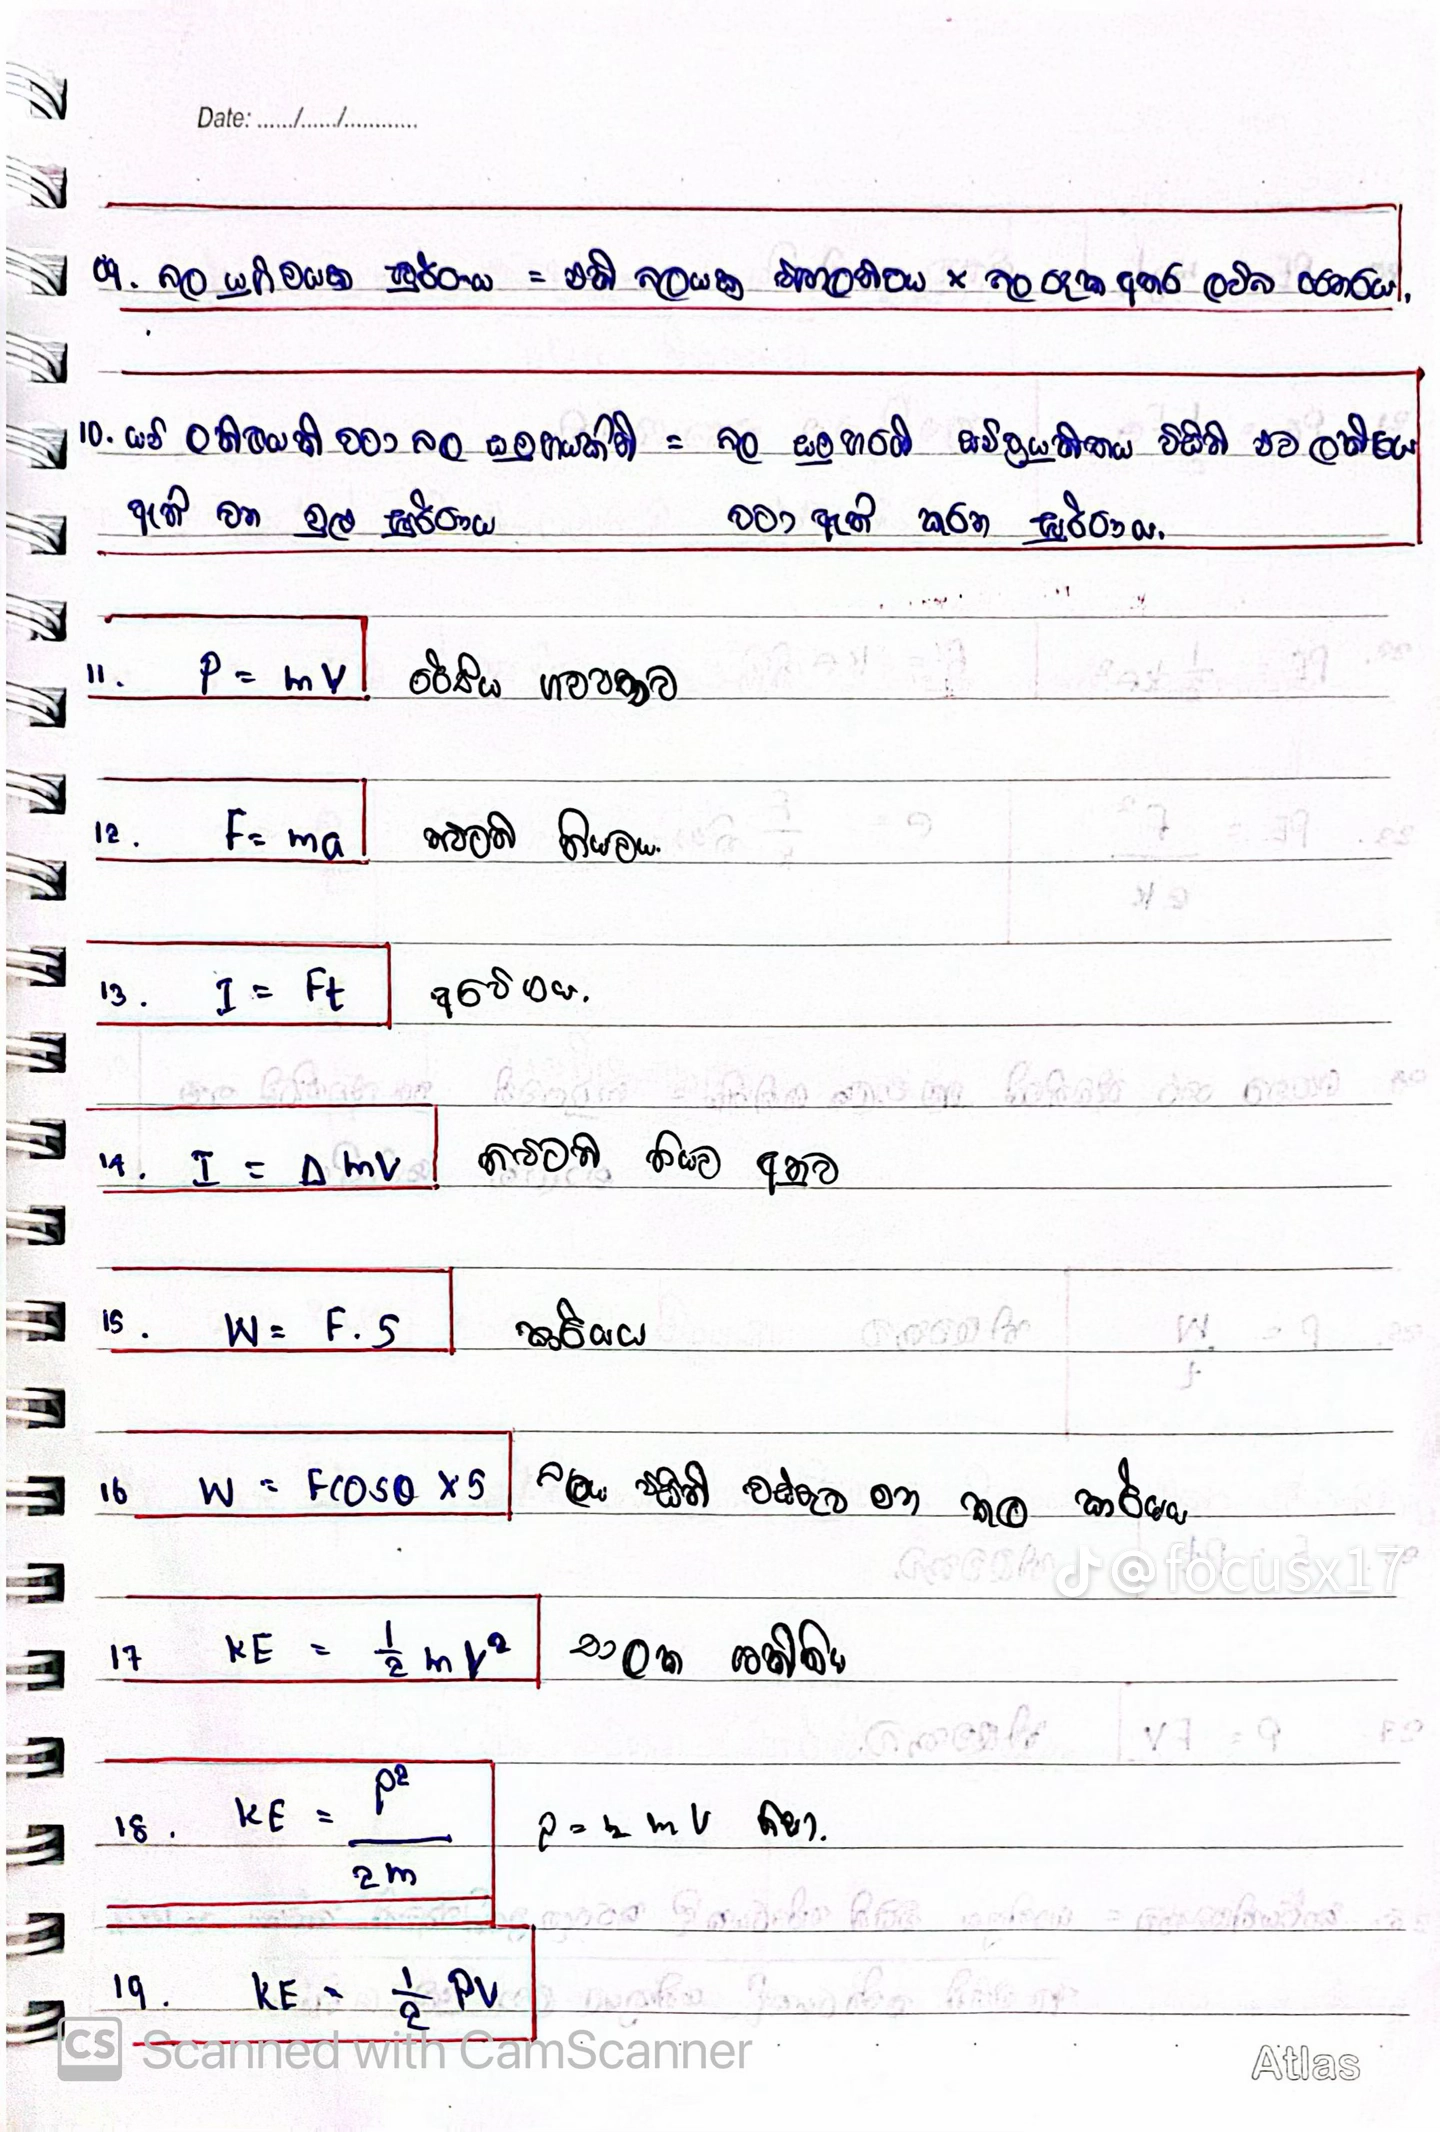 Date: ....../....../............
09. බල යුග්මයක සූර්ණය = එක් බලයක විශාලත්වය × බල දෙක අතර ලම්බ දුරය.
10. යම් ලක්ෂ්‍යයක් වටා බල සමූහයකින් = බල සමූහයේ සම්ප්‍රයුක්තය විසින් එම ලක්ෂ්‍යය
ඇති වන මුළු සූර්ණය වටා ඇති කරන සූර්ණය.
11. P = mV රේඛීය ගම්‍යතාව
12. F = ma නිව්ටන් නියමය.
13. I = Ft ආවේගය.
14. I = Δ mV නිව්ටන් නියම අනුව
15. W = F.S කාර්යය
16 W = Fcosθ × S බලය විසින් වස්තුව මත කල කාර්යය
@focusx17
17 KE = 1/2 mV² චාලක ශක්තිය
18. KE = P²/2m P = mV නිසා.
19. KE = 1/2 PV
CS Scanned with CamScanner
Atlas